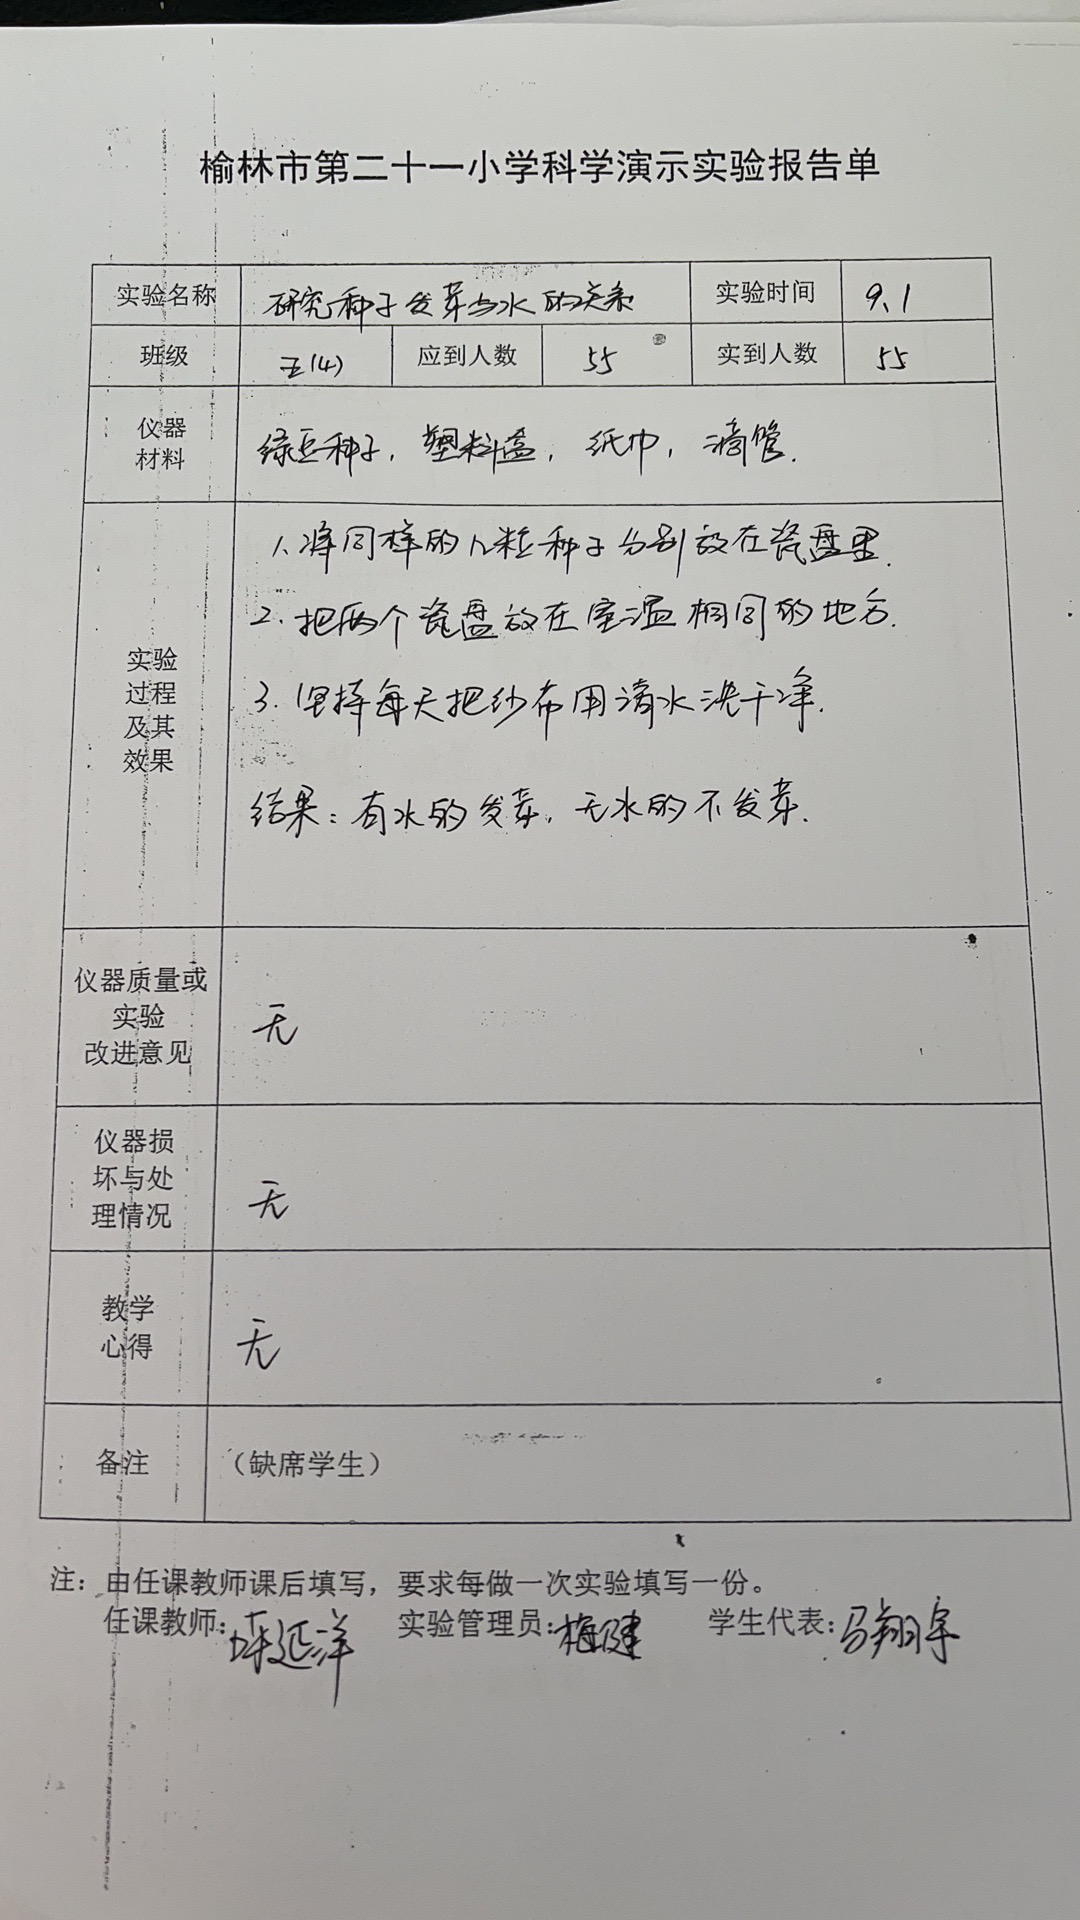 榆林市第二十一小学科学演示实验报告单
实验名称 研究种子发芽与水的关系 实验时间 9.1
班级 五(4) 应到人数 55 实到人数 55
仪器
材料
绿豆种子, 塑料盖, 纸巾, 滴管.
实验
过程
及其
效果
1. 将同样的几粒种子分别放在瓷盘里.
2. 把两个瓷盘放在室温相同的地方.
3. 坚持每天把纱布用清水洗干净.
结果: 有水的发芽, 无水的不发芽.
仪器质量或
实验
改进意见
无
仪器损
坏与处
理情况
无
教学
心得
无
备注 (缺席学生)
注: 由任课教师课后填写, 要求每做一次实验填写一份。
任课教师: 延洋 实验管理员: 梅健 学生代表: 马翔宇